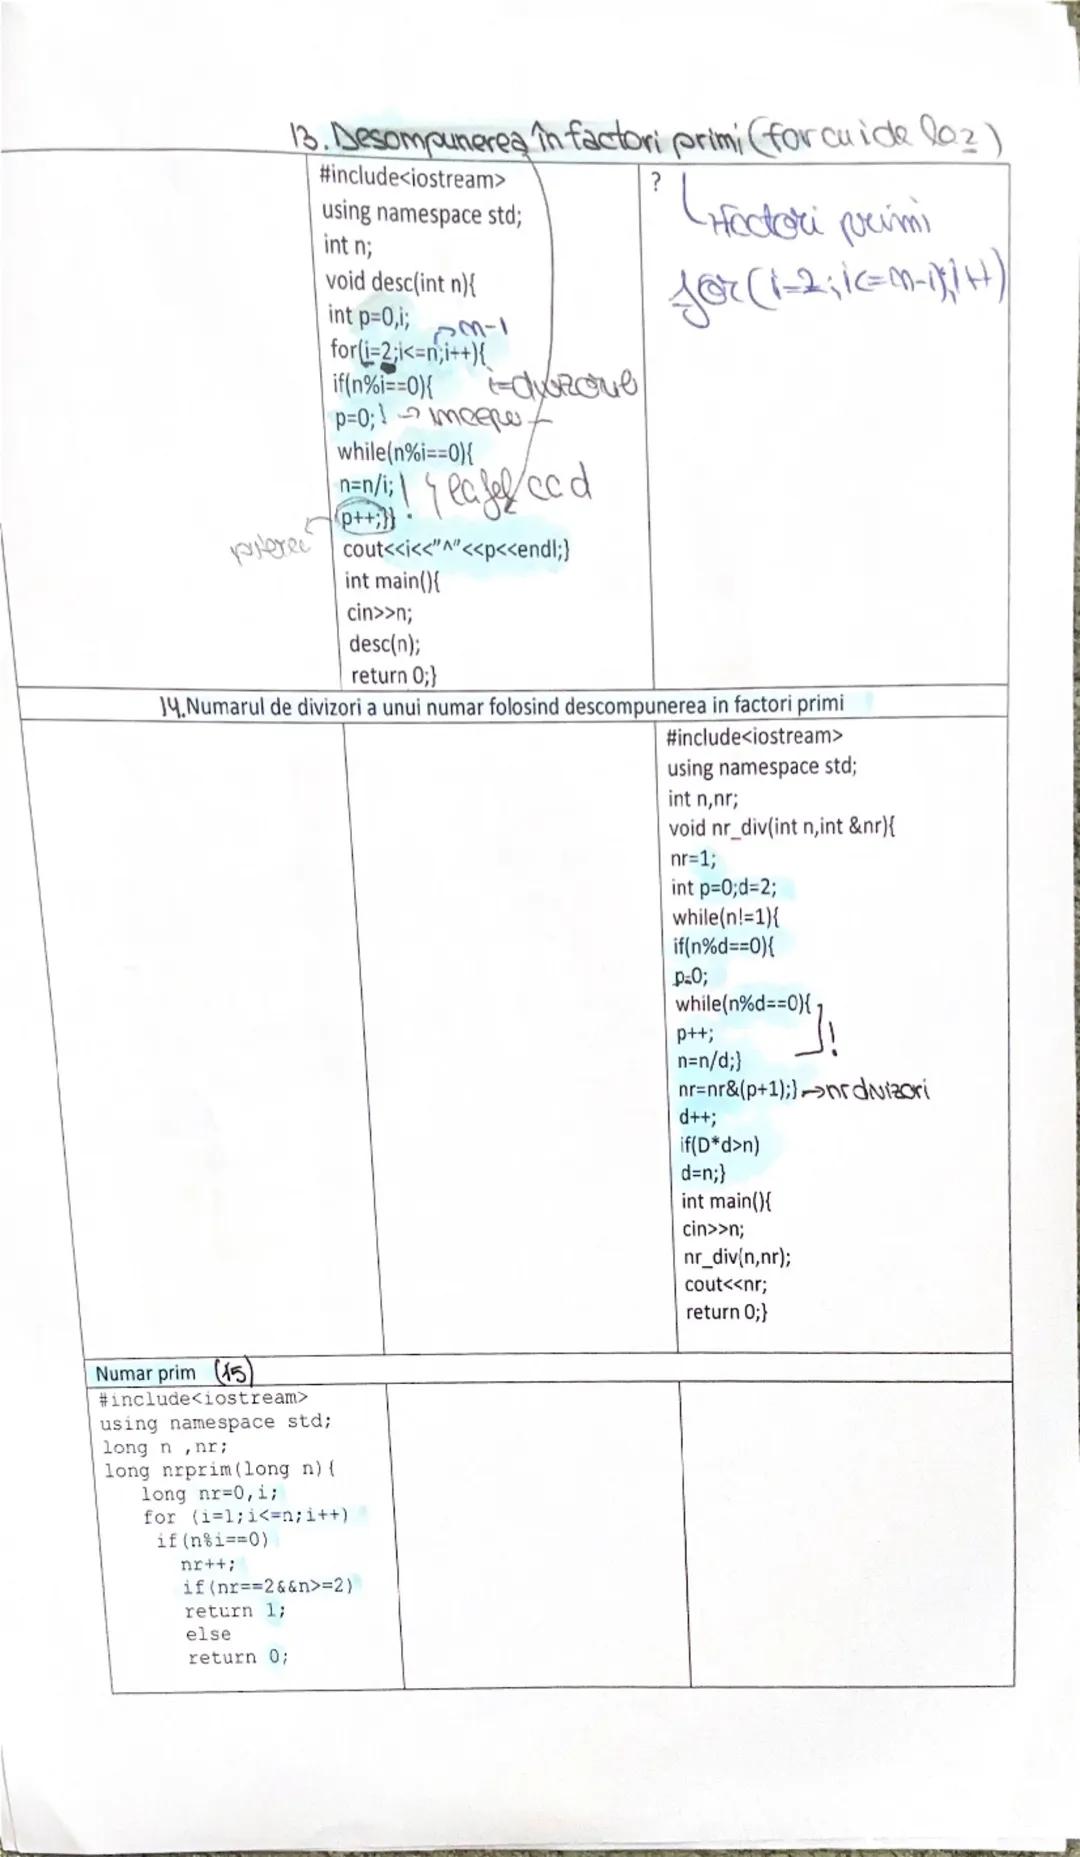 13. Desompunerea în factori primi (for cu i de la 2)
#include<iostream>
using namespace std;
int n;
void desc(int n){
int p=0,i;
n-1
for(i=2;i<=n;i++){
if(n%i==0){ i=divizorul
p=0;! →
while(n%i==0){
n=n/i; ! la fel ca d
p++;}}
cout<<i<<"^"<<p<<endl;}
int main(){
cin>>n;
desc(n);
return 0;}
? factori primi
for(i=2;i<=n-1;i++)
14.Numarul de divizori a unui numar folosind descompunerea in factori primi
#include<iostream>
using namespace std;
int n,nr;
void nr_div(int n,int &nr){
nr=1;
int p=0;d=2;
while(n!=1){
if(n%d==0){
p=0;
while(n%d==0){
p++; !
n=n/d;}
nr=nr&(p+1);} → nr divizori
d++;
if(D*d>n)
d=n;}
int main(){
cin>>n;
nr_div(n,nr);
cout<<nr;
return 0;}
Numar prim (15)
#include<iostream>
using namespace std;
long n ,nr;
long nrprim(long n){
long nr=0,i;
for (i=1;i<=n;i++)
if(n%i==0)
nr++;
if(nr==2&&n>=2)
return 1;
else
return 0;